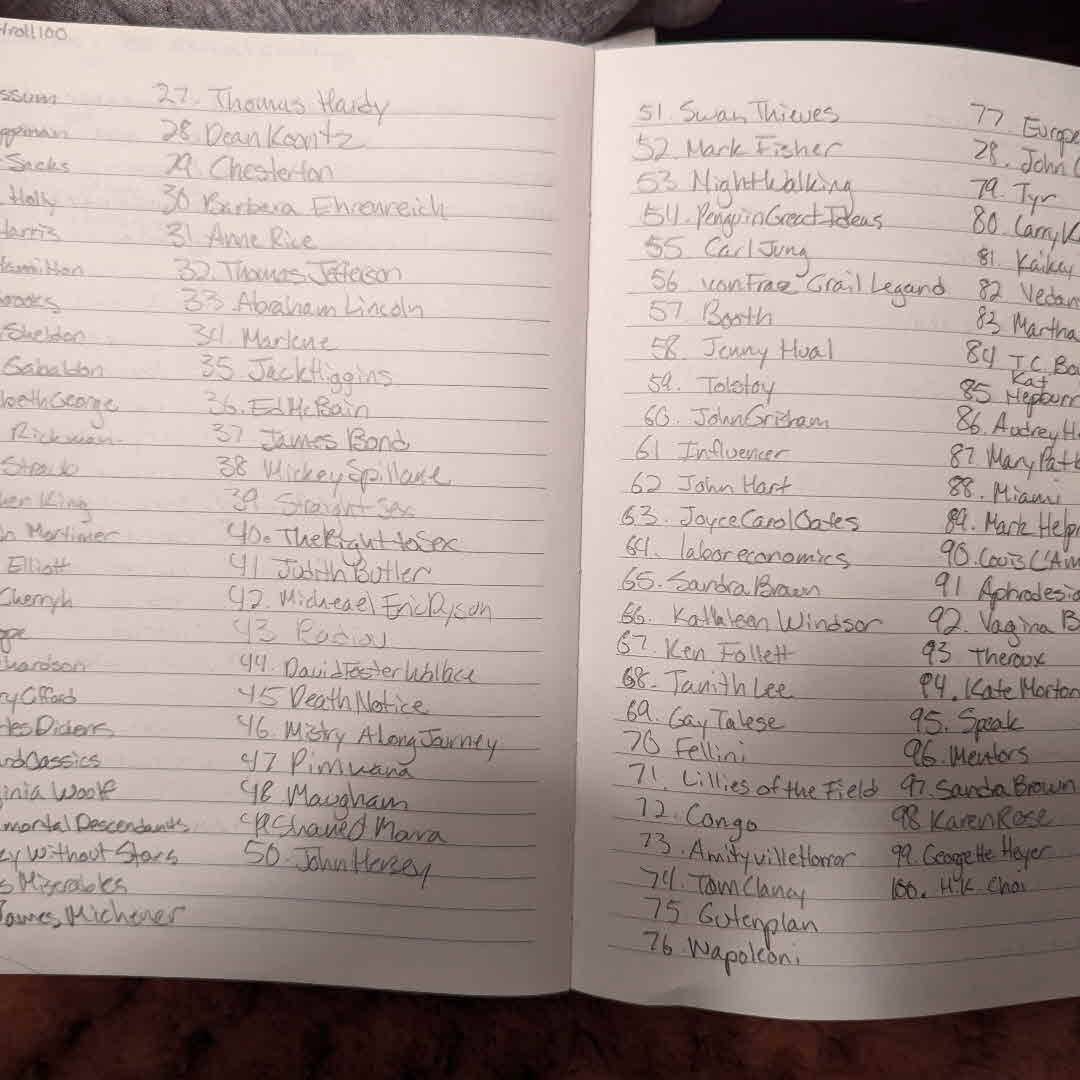 roll100
ssum
ppman
Sacks
Holly
Harris
Hamilton
brooks
Sheldon
Gabaldon
beth George
Rickman
Straub
hen King
n Mortimer
Elliott
Cherryh
ppe
hardson
ry Clfford
les Dickens
nd Classics
inia Woolf
mortal Descendants
ey Without Stars
s Miserables
James Michener
27. Thomas Hardy
28. Dean Koontz
29. Chesterton
30 Barbara Ehrenreich
31 Anne Rice
32. Thomas Jefferson
33. Abraham Lincoln
34. Marlene
35 Jack Higgins
36. Ed McBain
37 James Bond
38 Mickey Spillane
39 Straight Sex
40. The Right to Sex
41 Judith Butler
42. Micheael Eric Dyson
43
44. David Foster Wallace
45 Death Notice
46. Mistry A Long Journey
47 Pimwana
48 Maugham
49 Mara
50. John Hersey
51. Swan Thieves
52. Mark Fisher
53 Nightwalking
54. Penguin Great Ideas
55 Carl Jung
56 von Franz Grail Legand
57 Booth
58. Jenny Hval
59. Tolstoy
60. John Grisham
61 Influencer
62 John Hart
63. Joyce Carol Oates
64. labor economics
65. Sandra Brown
66. Kathleen Windsor
67. Ken Follett
68. Tanith Lee
69. Gay Talese
70 Fellini
71. Lillies of the Field
72. Congo
73. Amityville Horror
74. Tom Clancy
75 Gutenplan
76 Napoleoni
77 Europe
28. John
79. Tyr
80. Larry
81. Kaikey
82 Vedan
83 Martha
84 T.C. Bo
85 Kat Hepburn
86. Audrey H
87 Mary Patt
88. Miami
89. Mark Help
90. Louis L'Am
91 Aphrodesia
92. Vagina B
93 Theroux
94. Kate Morton
95. Speak
96. Mentors
97. Sandra Brown
98 Karen Rose
99. Georgette Heyer
100. H.K. Choi